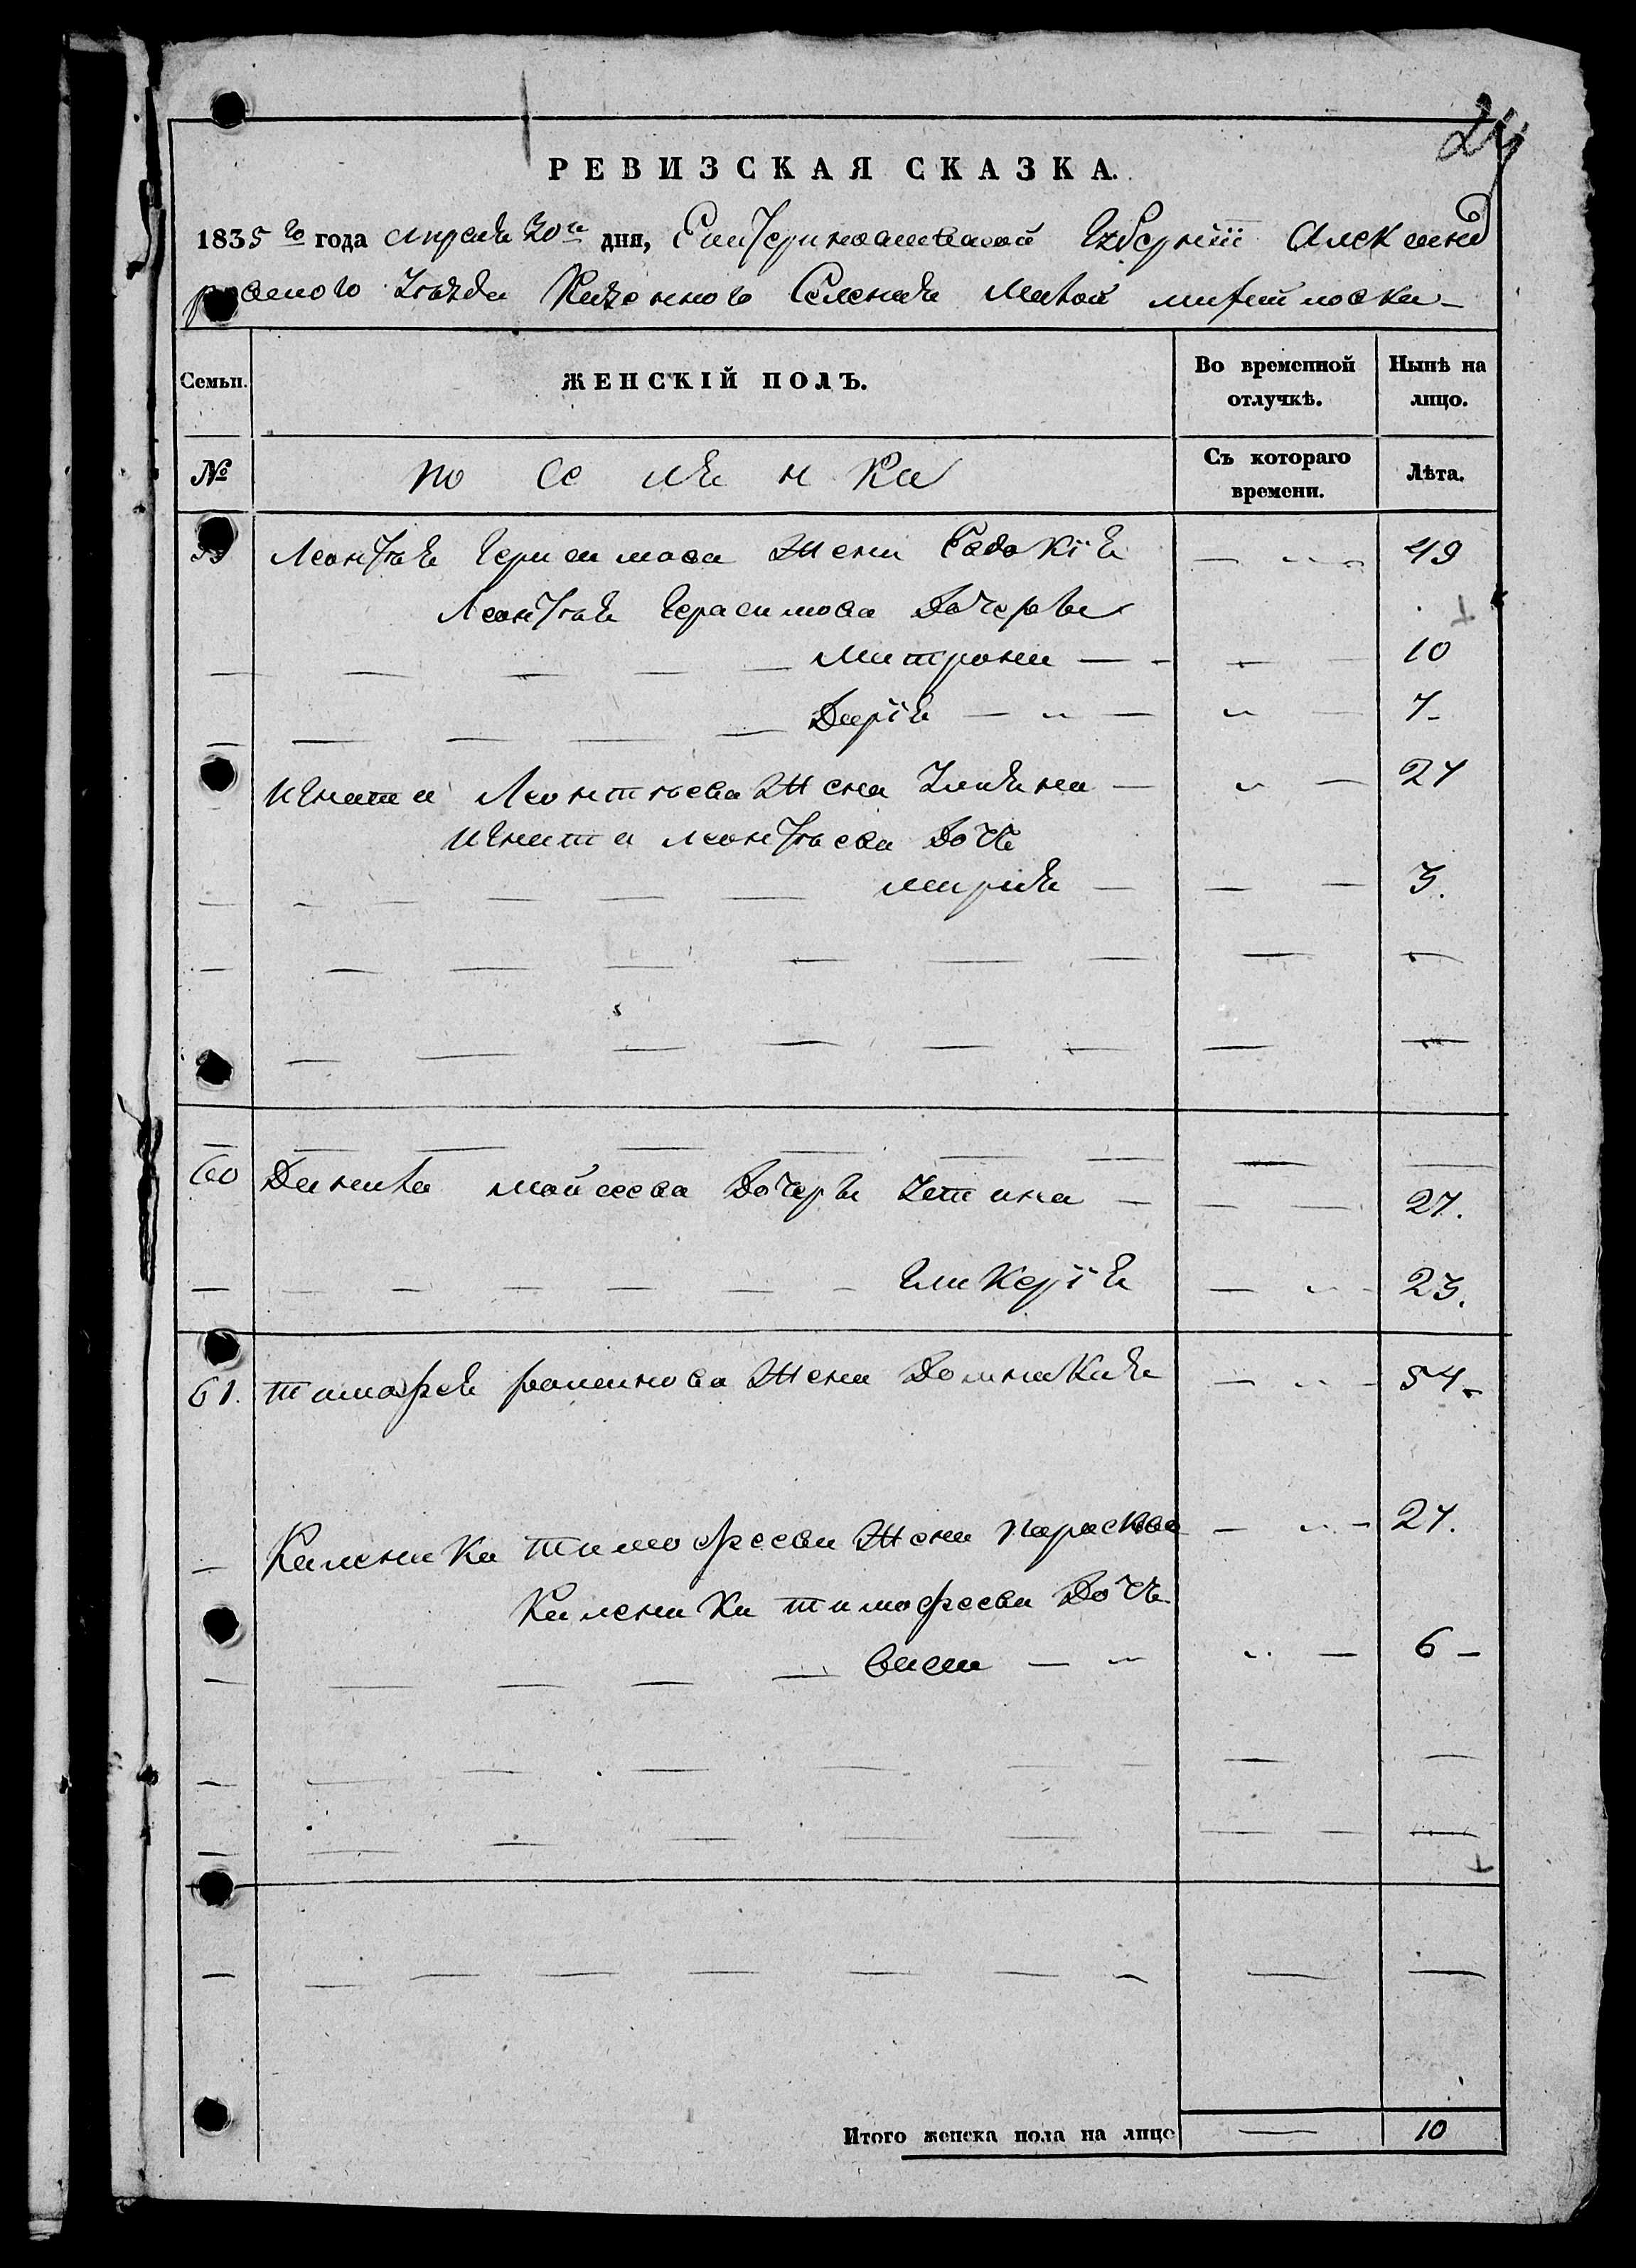 24
РЕВИЗСКАЯ СКАЗКА.
1835го года апреля 20го дня, Екатеринославской Губернiи Александ
ровского Уезда Казенного Селения Малой михайловки
Семьи.
ЖЕНСКІЙ ПОЛЪ.
Во временной отлучкѣ.
Нынѣ на лицо.
№
поселянки
Съ котораго времени.
Лѣта.
59 Леонтья Герасимова Жена Евдокiя 49
Леонтья Герасимова Дочерьи
Матрона 10
Дарiя 7
Игната Леонтьева Жена Ульяна 27
Игната леонтьева Дочь
мария 3.
60 Данила мойсеева Дочерьи устина 27.
Гликерiя 23.
61. тимофея романова Жена Домникия 54
Каленика тимофеева Жена параскева 27.
Каленика тимофеева Дочь
васса 6
Итого женска пола на лицо 10